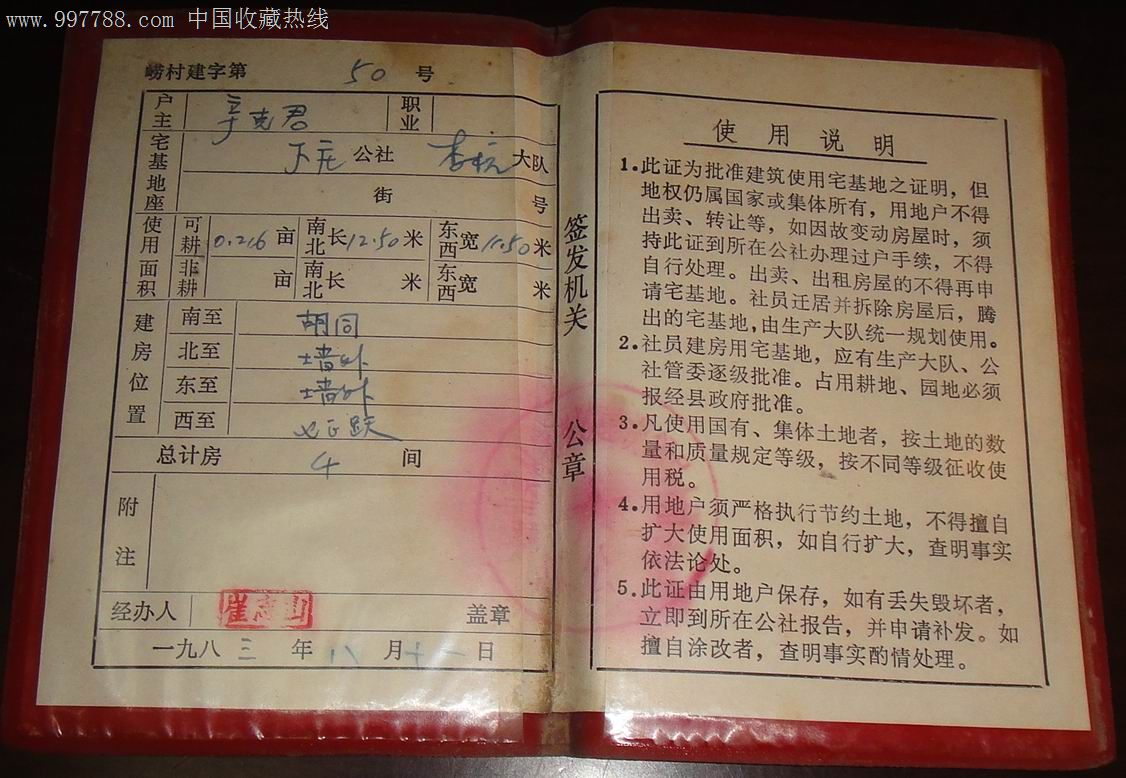 www.997788.com 中国收藏热线
崂村建字第 50 号
户主 辛克君 职业
宅基地座 下庄 公社 大队
街 号
使用面积 可耕 0.216 亩 南北长 12.50 米 东西宽 11.50 米
非耕 亩 南北长 米 东西宽 米
建房位置 南至 胡同
北至 墙外
东至 墙外
西至
总计房 4 间
附注
经办人 崔志山 盖章
一九八三年八月十一日
签发机关 公章
使用说明
1.此证为批准建筑使用宅基地之证明，但
地权仍属国家或集体所有，用地户不得
出卖、转让等，如因故变动房屋时，须
持此证到所在公社办理过户手续，不得
自行处理。出卖、出租房屋的不得再申
请宅基地。社员迁居并拆除房屋后，腾
出的宅基地，由生产大队统一规划使用。
2.社员建房用宅基地，应有生产大队、公
社管委逐级批准。占用耕地、园地必须
报经县政府批准。
3.凡使用国有、集体土地者，按土地的数
量和质量规定等级，按不同等级征收使
用税。
4.用地户须严格执行节约土地，不得擅自
扩大使用面积，如自行扩大，查明事实
依法论处。
5.此证由用地户保存，如有丢失毁坏者，
立即到所在公社报告，并申请补发。如
擅自涂改者，查明事实酌情处理。